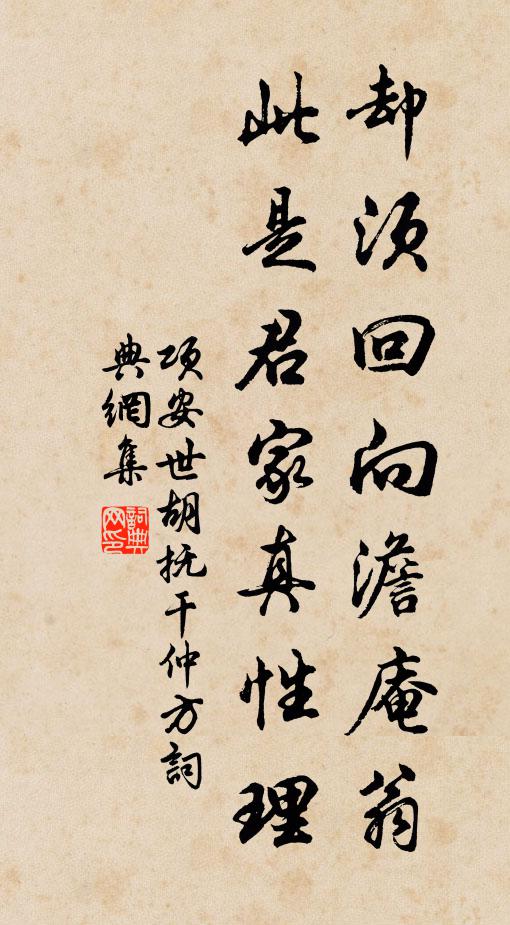 却须回向澹庵翁
此是君家真性理
项安世胡抚干仲方词
典網集
詞典網印